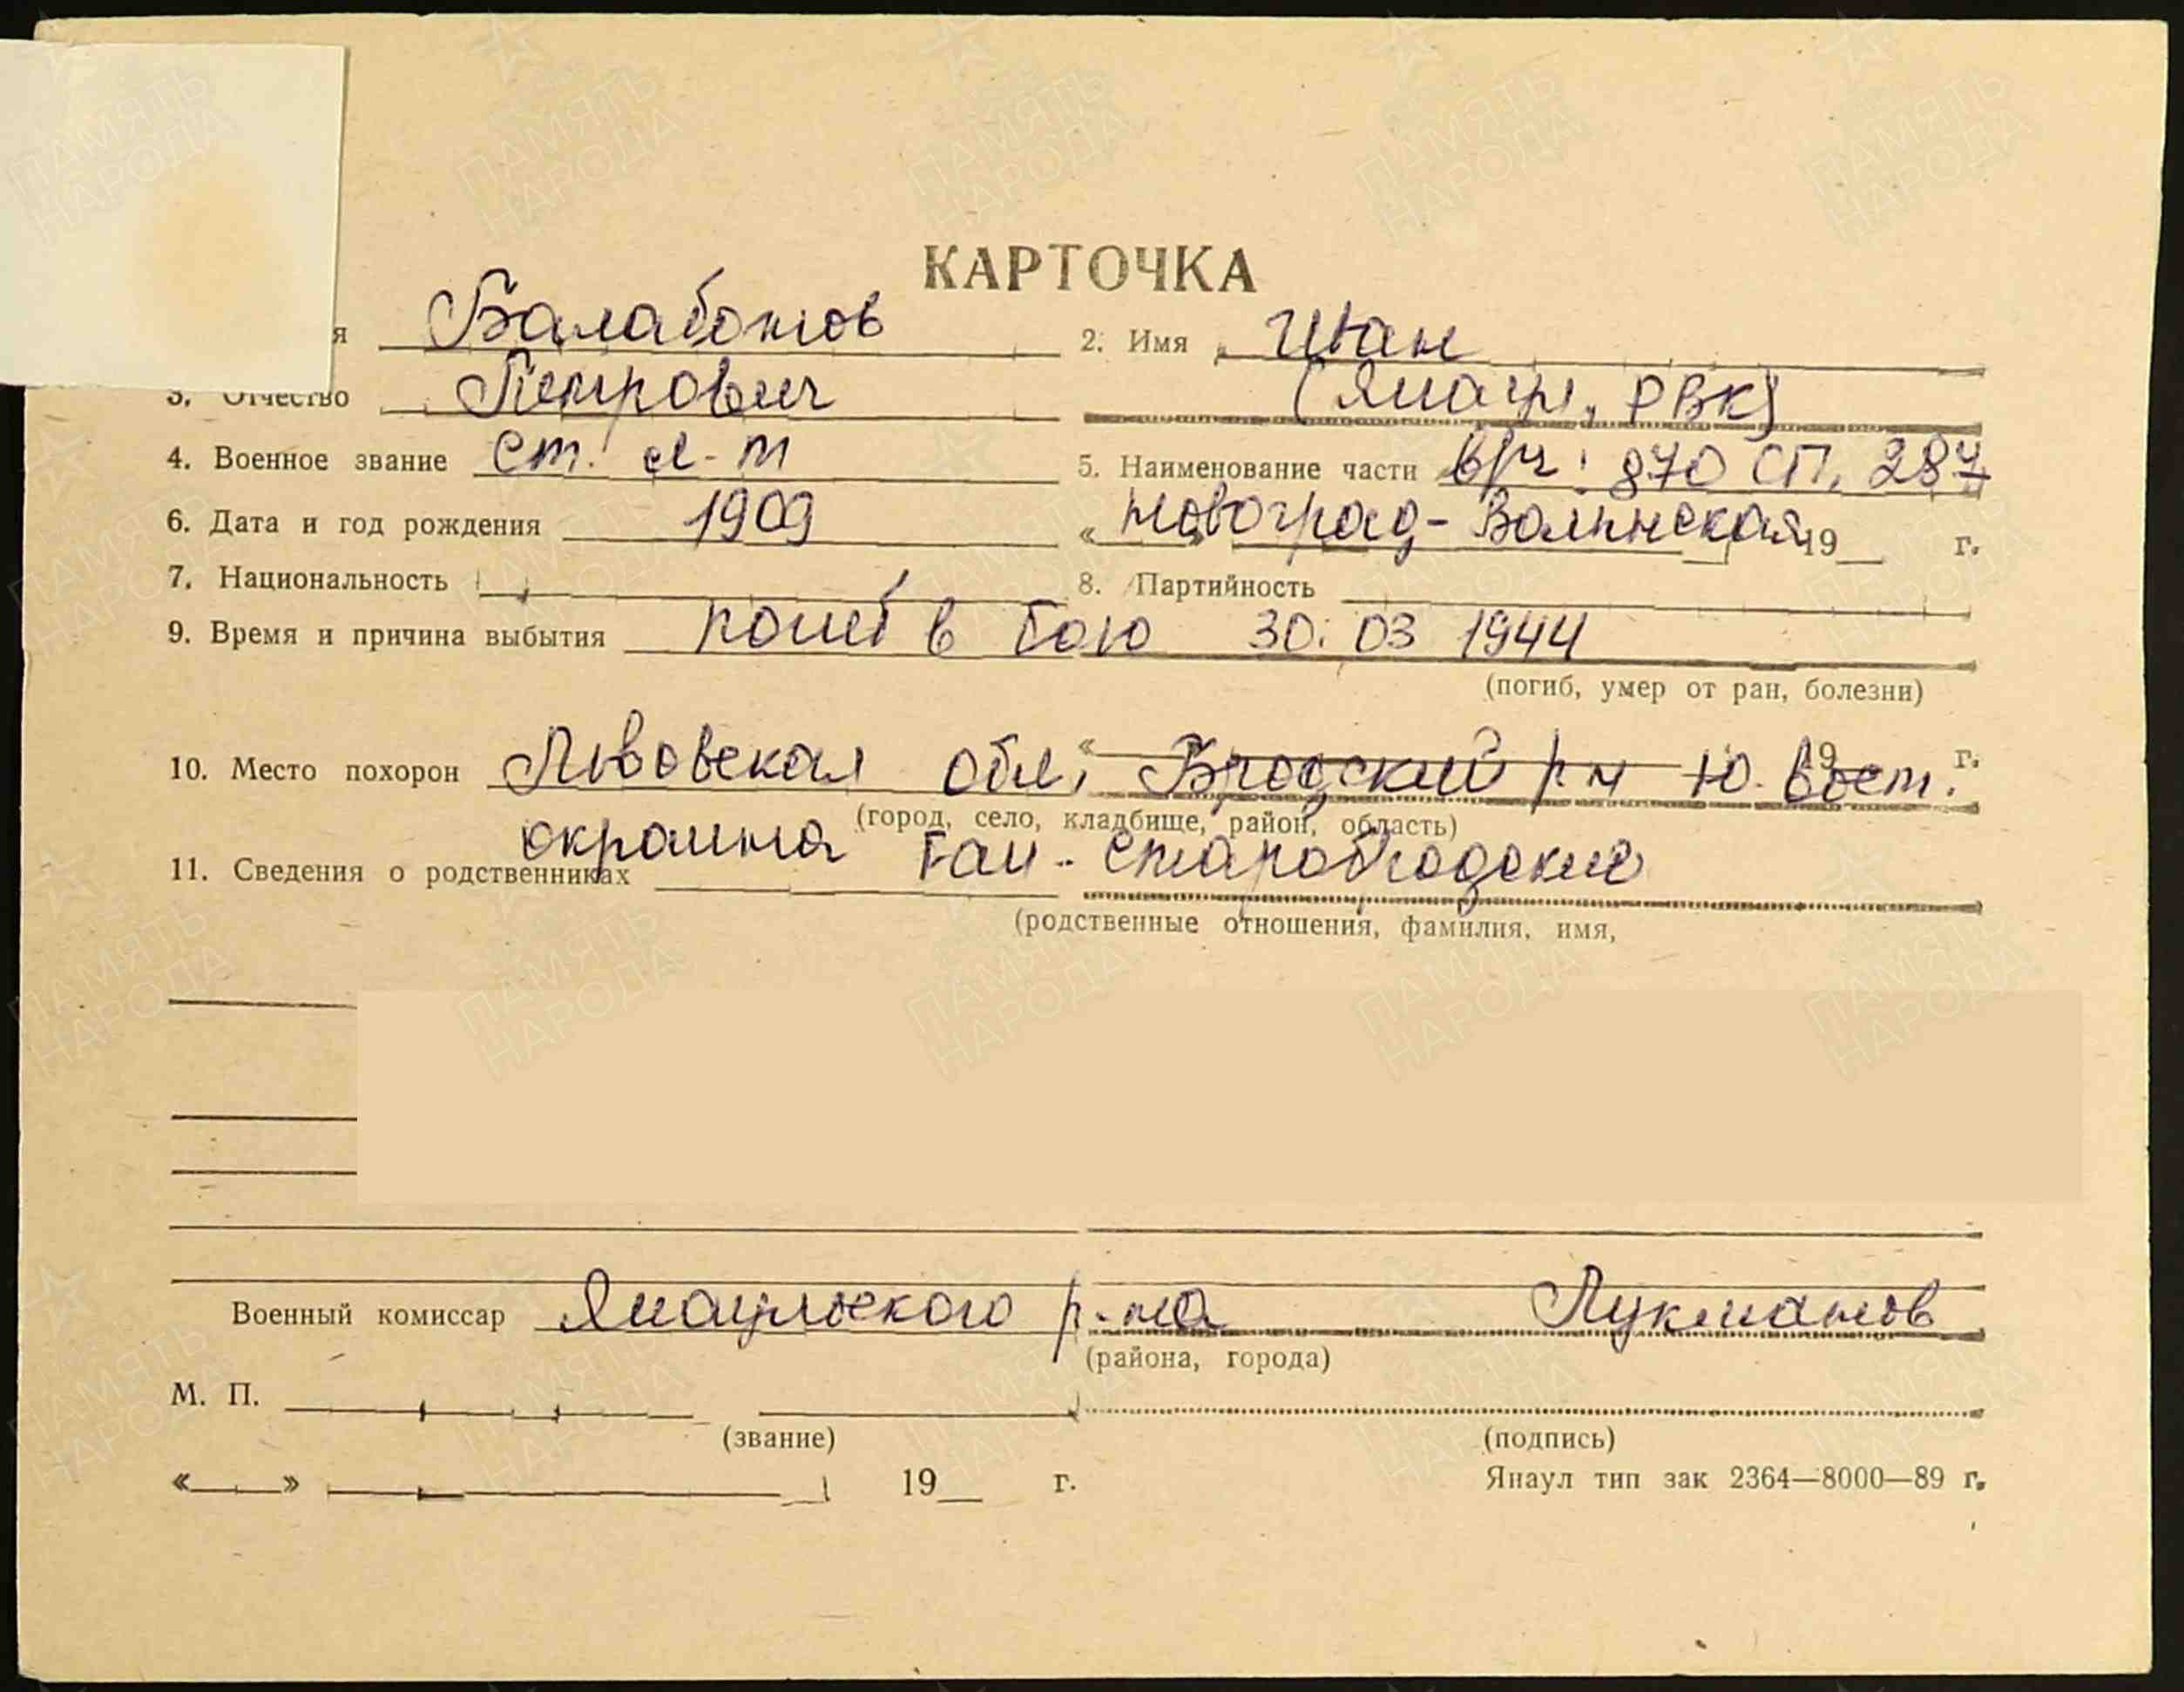 КАРТОЧКА
я Балабонов 2. Имя Иван
3. Отчество Петрович (Янаул. РВК)
4. Военное звание ст. л-т 5. Наименование части в/ч: 870 СП, 287
6. Дата и год рождения 1909 « Новоград-Волынская 19 г.
7. Национальность 8. Партийность
9. Время и причина выбытия погиб в бою 30. 03 1944
(погиб, умер от ран, болезни)
« 19 г.
10. Место похорон Львовская обл, Бродский р-н Ю. Вост.
(город, село, кладбище, район, область)
окраина Гаи-Старобродские
11. Сведения о родственниках
(родственные отношения, фамилия, имя,
Военный комиссар Янаульского р-на Лукманов
(района, города)
М. П.
(звание) (подпись)
« » 19 г. Янаул тип зак 2364—8000—89 г.
ПАМЯТЬ НАРОДА